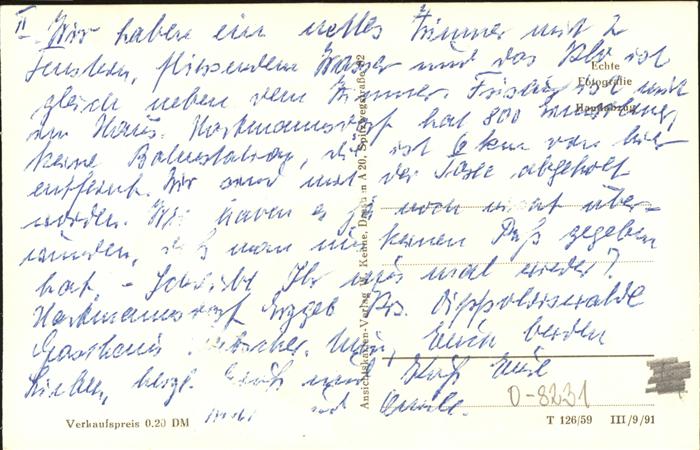 II
Wir haben ein nettes Zimmer mit 2
Fenstern, fliessendem Wasser und das Klo ist
gleich neben dem Zimmer. ist mit
im Haus. Hartmannsdorf hat 800 Einwohner,
keine Bahnstation, die ist 6 km von hier
entfernt. Wir sind mit der Taxe abgeholt
worden. Wir haben es ja noch nicht über-
wunden, daß man mir keinen Paß gegeben
hat. – Schreibt Ihr uns mal wieder?
Hartmannsdorf Erzgeb Krs. Dippoldiswalde
Gasthaus Nun, Euch beiden
Lieben, herzl. Gruß und Kuß Eure
und
Echte
Fotografie
Handabzug
Ansichtskarten-Verlag Kehne, Dresden A 20, Spitzwegstraße 62
Verkaufspreis 0.20 DM
O-8231
T 126/59 III/9/91